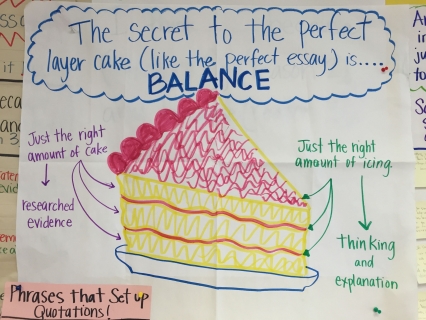 The secret to the perfect
layer cake (like the perfect essay) is....
BALANCE
Just the right
amount of cake
researched
evidence
Just the right
amount of icing.
thinking
and
explanation
Phrases that Set up
Quotations!